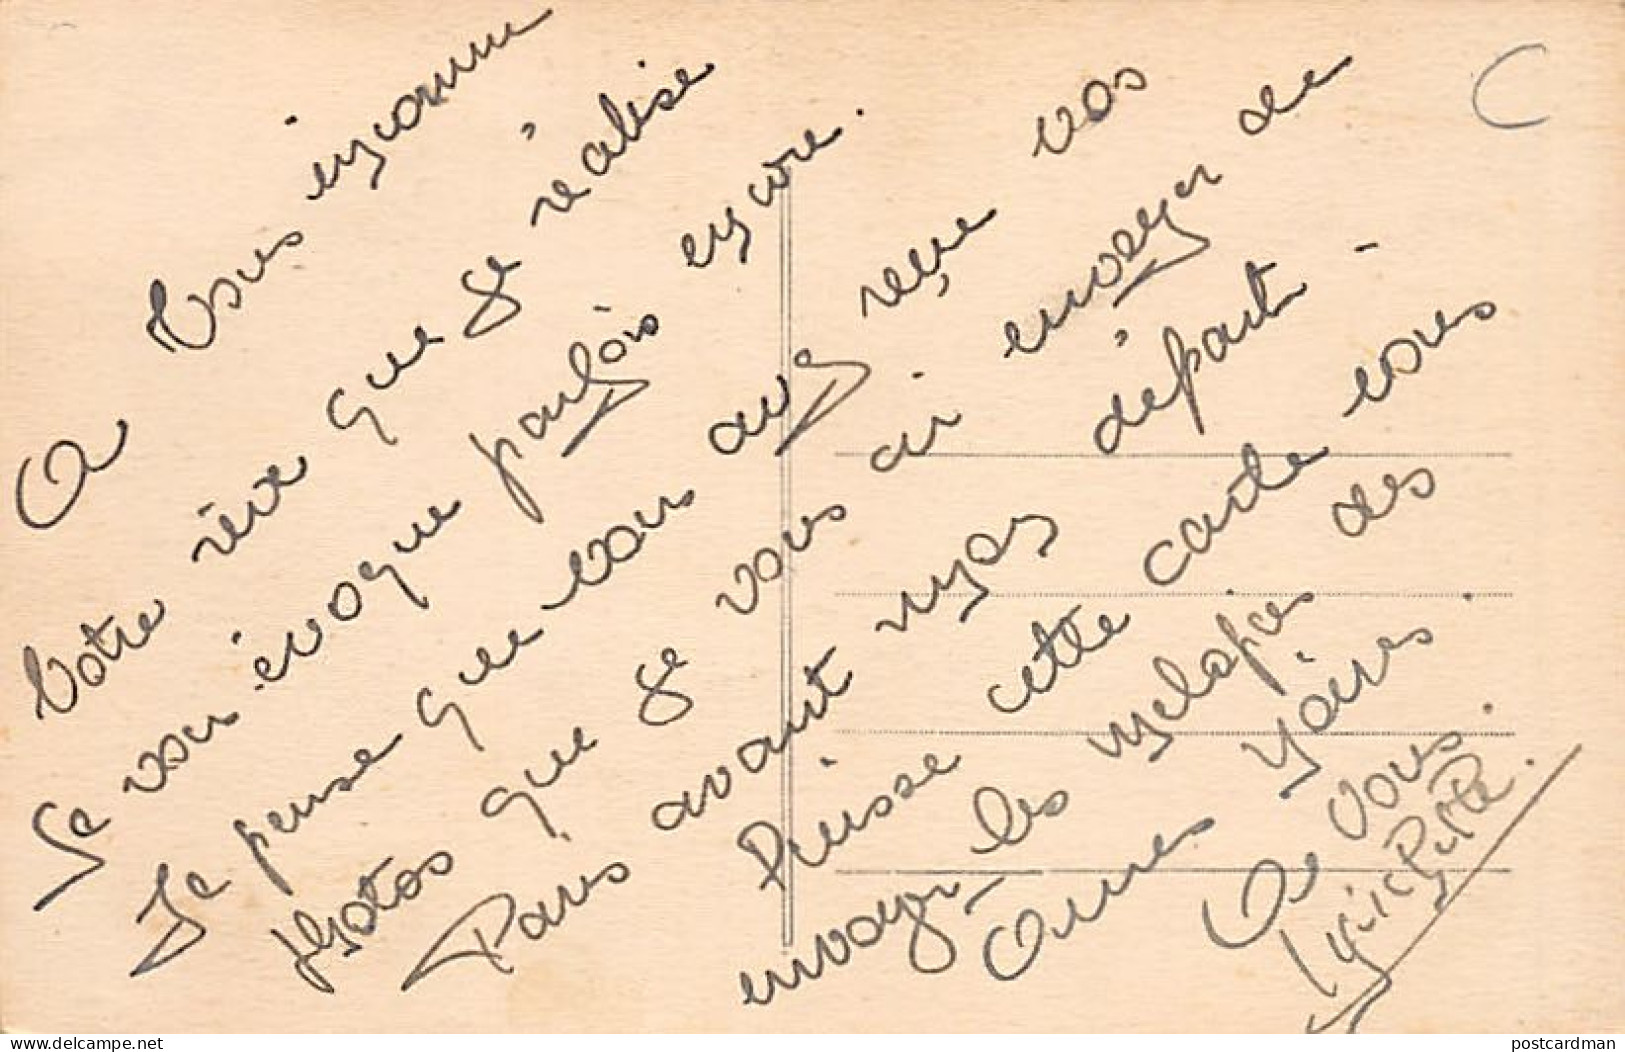 A vous
Votre rêve que je réalise
Je vous évoque parfois encore.
Je pense que vous avez reçu vos
photos que je vous ai envoyer de
Paris avant mon départ -
Puisse cette carte vous
envoyer les des
Ames Noires.
A Vous.
postcardman